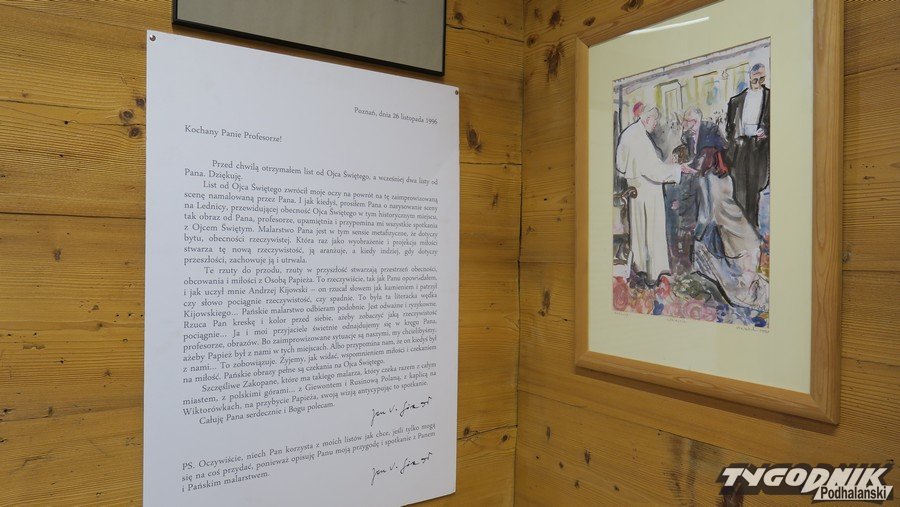 Poznań, dnia 26 listopada 1996
Kochany Panie Profesorze!
Przed chwilą otrzymałem list od Ojca Świętego, a wcześniej dwa listy od
Pana. Dziękuję.
List od Ojca Świętego zwrócił moje oczy na powrót na tę zaimprowizowaną
scenę namalowaną przez Pana. I jak kiedyś, prosiłem Pana o narysowanie sceny
na Lednicy, przewidującej obecność Ojca Świętego w tym historycznym miejscu,
tak obraz od Pana, profesorze, upamiętnia i przypomina mi wszystkie spotkania
z Ojcem Świętym. Malarstwo Pana jest w tym sensie metafizyczne, że dotyczy
bytu, obecności rzeczywistej. Która raz jako wyobrażenie i projekcja miłości
stwarza tę nową rzeczywistość, ją aranżuje, a kiedy indziej, gdy dotyczy
przeszłości, zachowuje ją i utrwala.
Te rzuty do przodu, rzuty w przyszłość stwarzają przestrzeń obecności,
obcowania i miłości z Osobą Papieża. To rzeczywiście, tak jak Panu opowiadałem,
i jak uczył mnie Andrzej Kijowski – on rzucał słowem jak kamieniem i patrzył
czy słowo pociągnie rzeczywistość, czy spadnie. To była ta literacka wędka
Kijowskiego... Pańskie malarstwo odbieram podobnie. Jest odważne i ryzykowne.
Rzuca Pan kreskę i kolor przed siebie, ażeby zobaczyć jaką rzeczywistość
pociągnie... Ja i moi przyjaciele świetnie odnajdujemy się w kręgu Pana,
profesorze, obrazów. Bo zaimprowizowane sytuacje są naszymi, my chcielibyśmy,
ażeby Papież był z nami w tych miejscach. Albo przypomina nam, że on kiedyś był
z nami... To zobowiązuje. Żyjemy, jak widać, wspomnieniem miłości i czekaniem
na miłość. Pańskie obrazy pełne są czekania na Ojca Świętego.
Szczęśliwe Zakopane, które ma takiego malarza, który czeka razem z całym
miastem, z polskimi górami... z Giewontem i Rusinową Polaną, z kaplicą na
Wiktorówkach, na przybycie Papieża, swoją wizją antycypując to spotkanie.
Całuję Pana serdecznie i Bogu polecam.
Jan W. Góra OP
PS. Oczywiście, niech Pan korzysta z moich listów jak chce, jeśli tylko mogą
się na coś przydać, ponieważ opisuję Panu moją przygodę i spotkanie z Panem
i Pańskim malarstwem.
Jan W. Góra OP
TYGODNIK
Podhalański